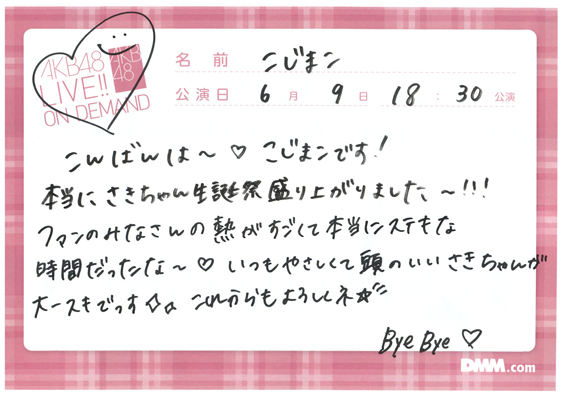 AKB48
LIVE!!
ON DEMAND
AKB
48
名前 こじまこ
公演日 6月9日 18:30公演
こんばんは～♡ こじまこです!
本当にさきちゃん生誕祭盛り上がりました～!!!
ファンのみなさんの熱がすごくて本当にステキな
時間だったな～♡ いつもやさしくて頭のいいさきちゃんが
大ースキでっす☆。これからもよろしくネ☆
Bye Bye ♡
DMM.com